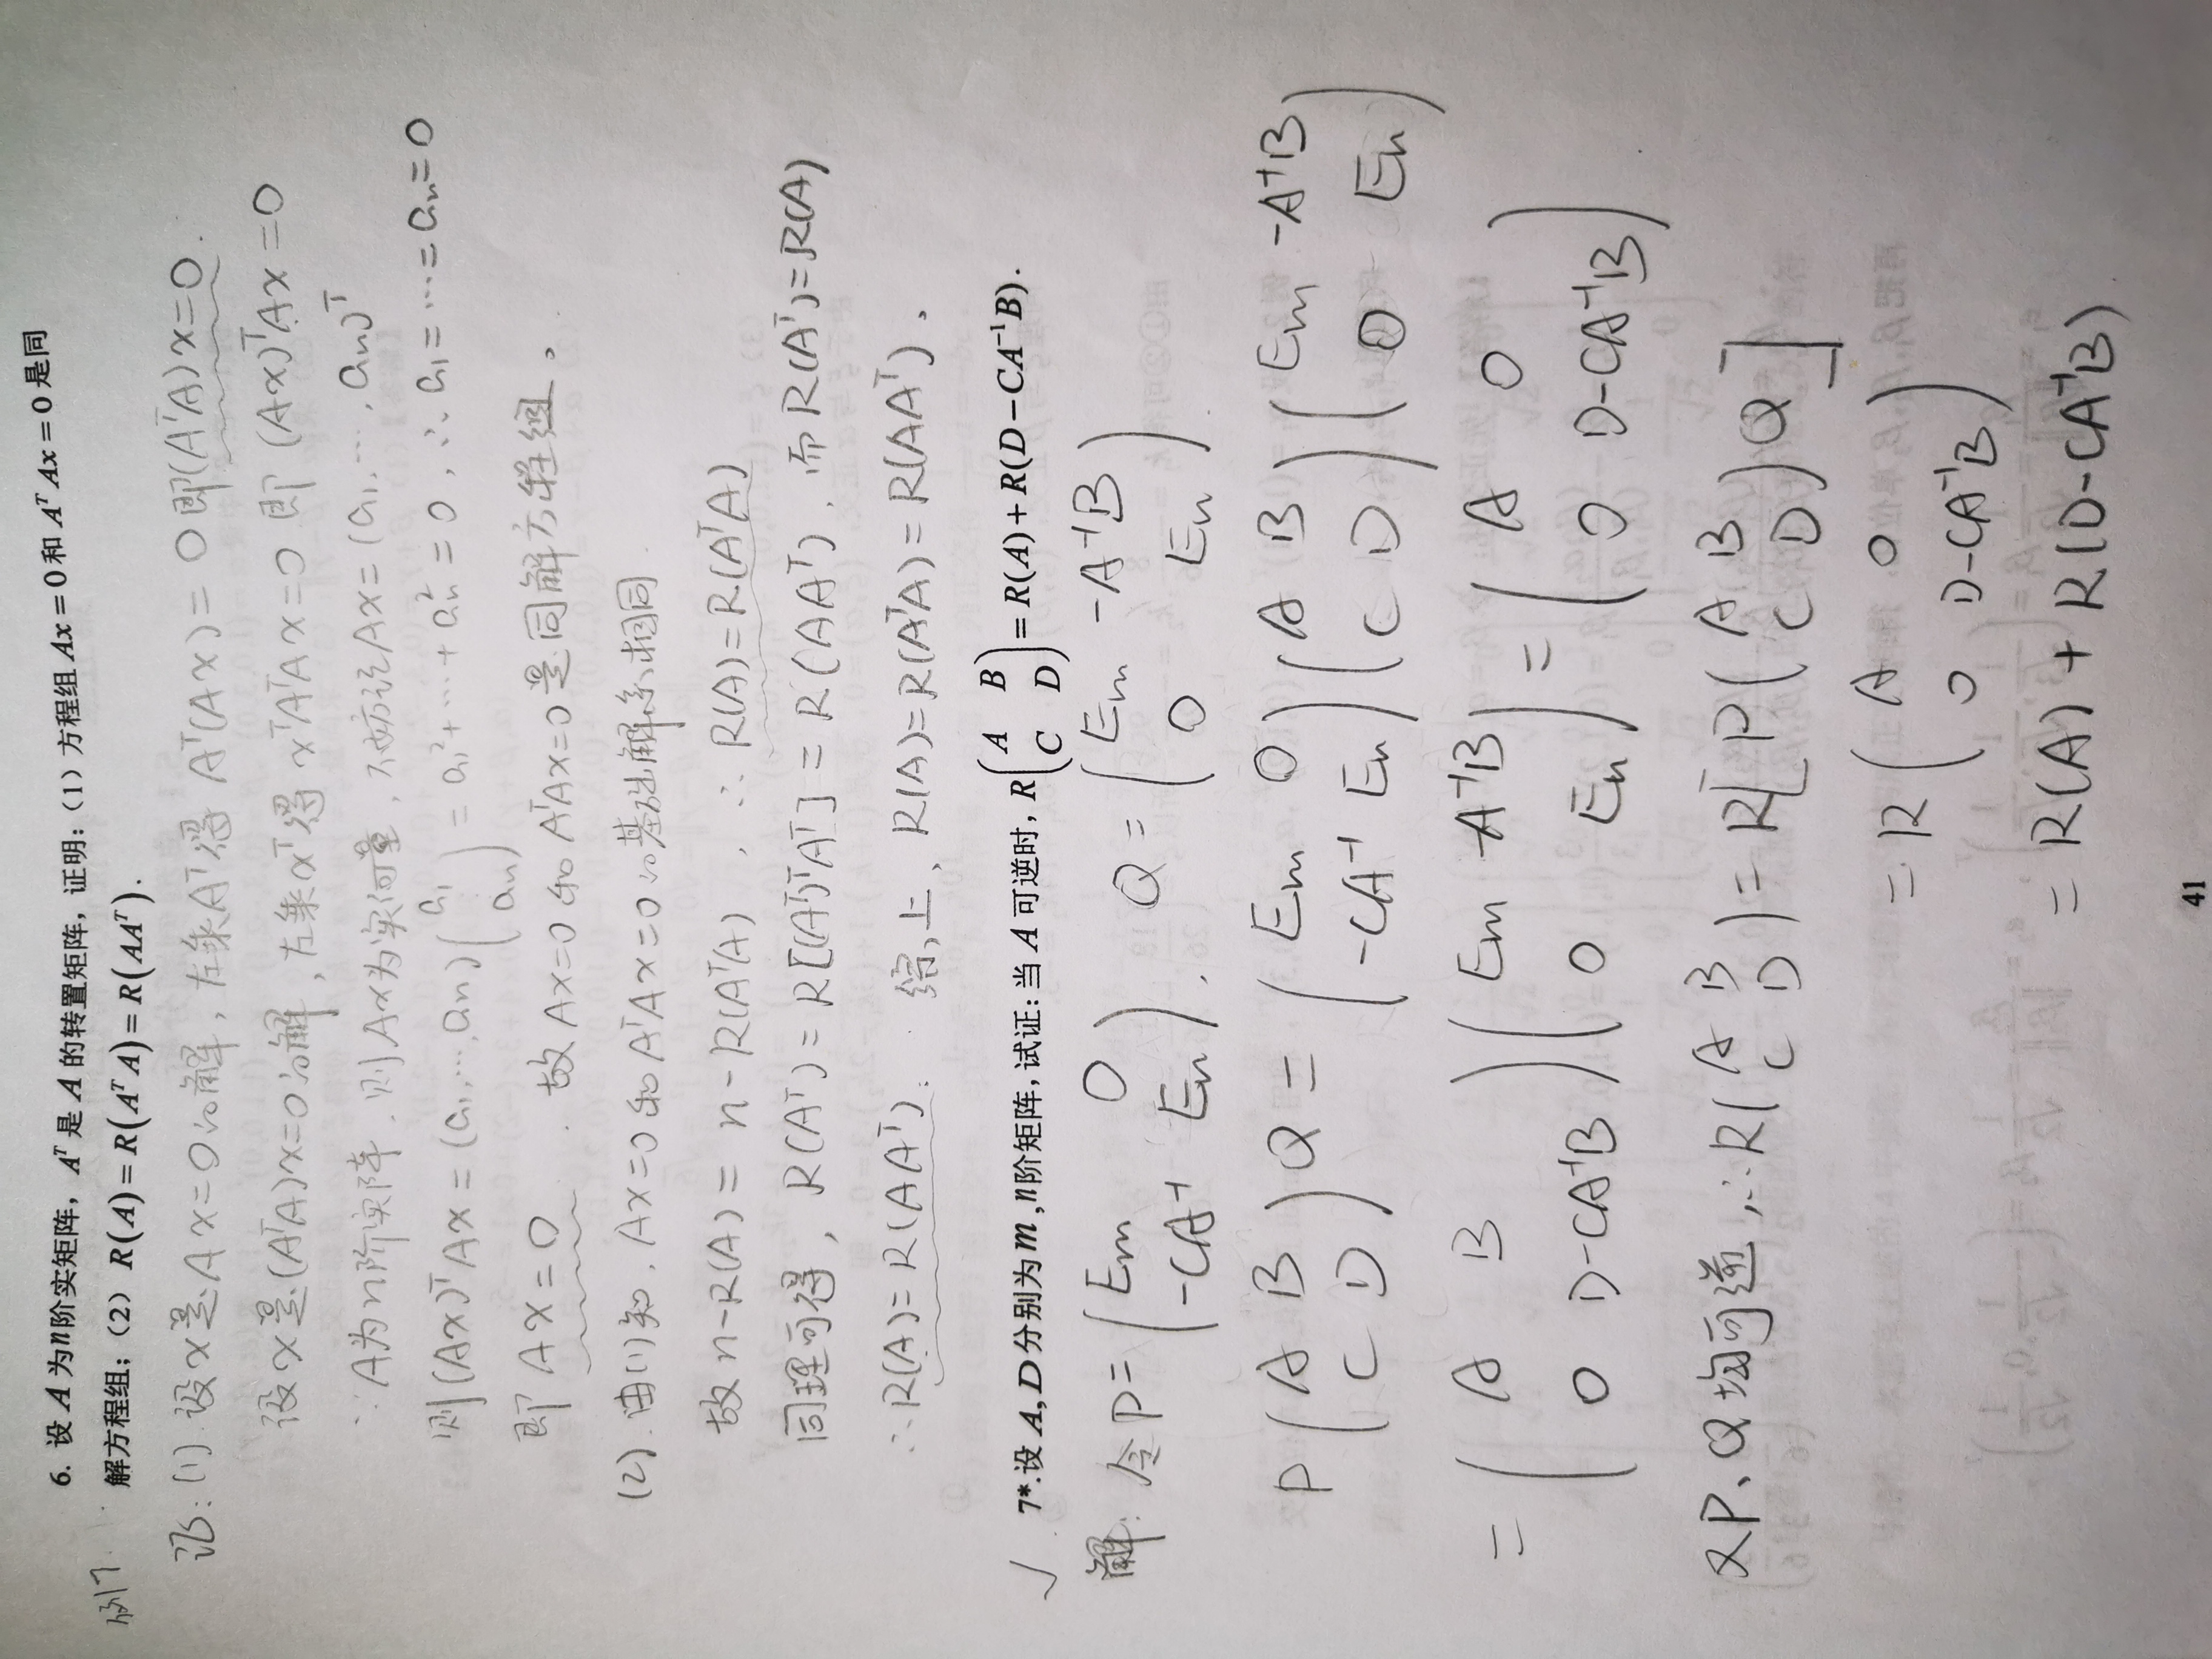 6. 设 A 为n阶实矩阵，Aᵀ 是 A 的转置矩阵，证明：（1）方程组 Ax = 0 和 Aᵀ Ax = 0 是同
例7.
解方程组；（2） R(A) = R(Aᵀ A) = R(AAᵀ).
证: (1). 设x是Ax=0的解, 左乘Aᵀ得 Aᵀ(Ax) = 0 即(AᵀA)x=0.
设x是(AᵀA)x=0的解, 左乘xᵀ得 xᵀAᵀAx=0 即 (Ax)ᵀAx=0
∵A为n阶实阵. 则Ax为实向量, 不妨设Ax=(a₁, ⋯, aₙ)ᵀ
则(Ax)ᵀAx = (a₁,⋯,aₙ)(a₁ ⋮ aₙ) = a₁²+⋯+aₙ² = 0, ∴a₁=⋯=aₙ=0
即 Ax=0. 故Ax=0和AᵀAx=0是同解方程组。
(2). 由(1)知, Ax=0和AᵀAx=0的基础解系相同
故n-R(A) = n-R(AᵀA), ∴ R(A)=R(AᵀA)
同理可得, R(Aᵀ)=R[(Aᵀ)ᵀAᵀ] = R(AAᵀ), 而R(Aᵀ)=R(A)
∴R(A)=R(AAᵀ). 综上, R(A)=R(AᵀA)=R(AAᵀ).
√ 7*.设 A, D分别为m ,n阶矩阵, 试证: 当 A 可逆时, R(A B; C D) = R(A) + R(D − CA⁻¹B).
解: 令P=(Em 0; -CA⁻¹ En), Q=(Em -A⁻¹B; 0 En).
P(A B; C D)Q = (Em 0; -CA⁻¹ En)(A B; C D)(Em -A⁻¹B; 0 En)
=(A B; 0 D-CA⁻¹B)(Em -A⁻¹B; 0 En)=(A 0; 0 D-CA⁻¹B).
又P、Q均可逆, ∴R(A B; C D)=R[P(A B; C D)Q]
=R(A 0; 0 D-CA⁻¹B)
=R(A)+R(D-CA⁻¹B).
41